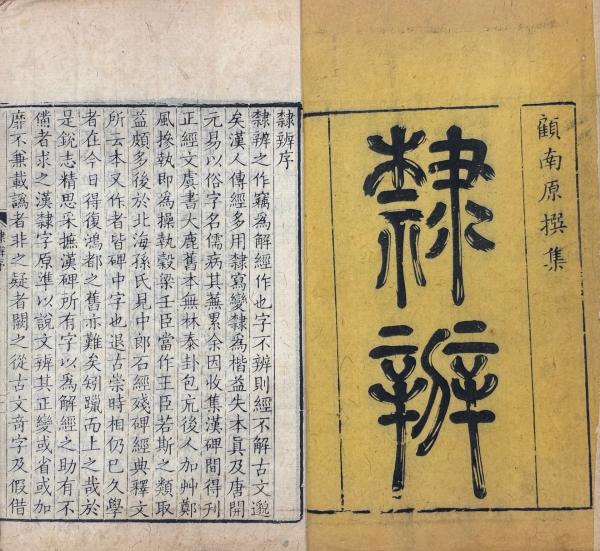 顧南原撰集
隸辨
隸辨序
隸辨之作竊為解經作也字不辨則經不解古文邈
矣漢人傳經多用隸寫變隸為楷益失本真及唐開
元易以俗字名儒病其蕪累余因收集漢碑間得刊
正經文虞書大鹿舊本無林泰卦包巟後人加艸鄭
風摻執即為操執穀梁壬臣當作王臣若斯之類取
益頗多後於北海孫氏見中郎石經殘碑經典釋文
所云本又作者皆碑中字也退古崇時相仍已久學
者在今日得復鴻都之舊亦難矣矧躐而上之哉於
是銳志精思采摭漢碑所有字以為解經之助有不
備者求之漢隸字原準以說文辨其正變或省或加
靡不兼載譌者非之疑者闕之從古文奇字及假借